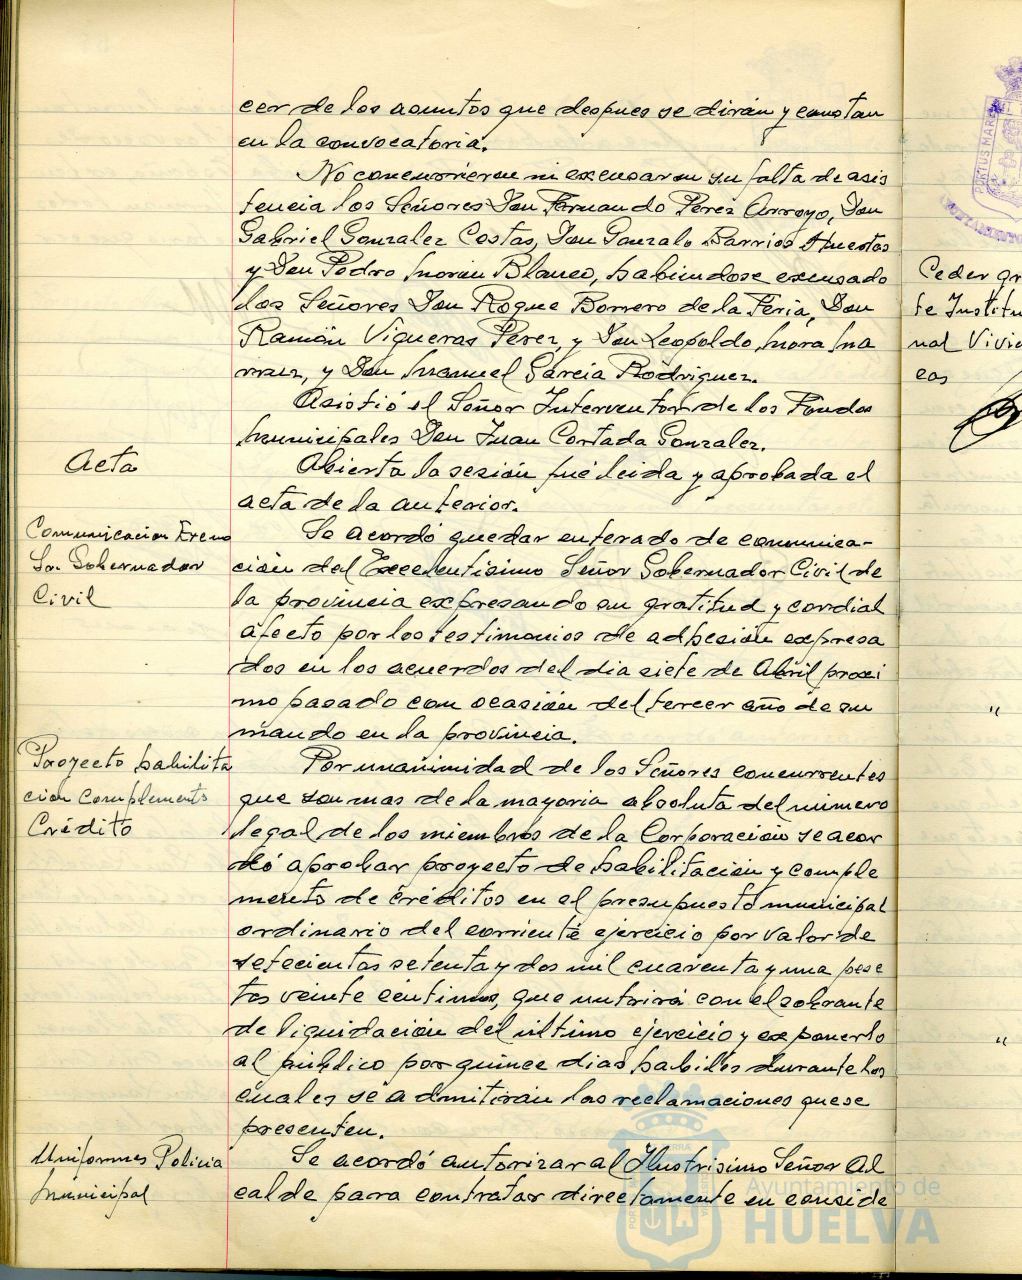 cer de los asuntos que despues se dirán y constan
en la convocatoria.
No concurrieron ni excusaron su falta de asis
tencia los Señores Don Fernando Perez Arroyo, Don
Gabriel Gonzalez Costas, Don Gonzalo Barrios Huestas
y Don Pedro Morón Blanco, habiendose excusado
los Señores Don Roque Borrero de la Feria, Don
Ramón Vigueras Perez, y Don Leopoldo Mora Ma
rruz, y Don Manuel Garcia Rodriguez.
Asistió el Señor Interventor de los Fondos
Municipales Don Juan Cortada Gonzalez.
Acta
Abierta la sesión fué leida y aprobada el
acta de la anterior.
Comunicacion Excmo
Sr. Gobernador
Civil
Se acordó quedar enterado de comunica-
ción del Excelentisimo Señor Gobernador Civil de
la provincia expresando su gratitud y cordial
afecto por los testimonios de adhesión expresa
dos en los acuerdos del dia siete de Abril proxi
mo pasado con ocasión del tercer año de su
mando en la provincia.
Proyecto habilita
cion Complemento
Crédito
Por unanimidad de los Señores concurrentes
que son mas de la mayoria absoluta del número
legal de los miembros de la Corporación se acor
dó aprobar proyecto de habilitación y comple
mento de créditos en el presupuesto municipal
ordinario del corriente ejercicio por valor de
setecientas setenta y dos mil cuarenta y una pese
tas veinte centimos, que nutrirá con el sobrante
de liquidación del ultimo ejercicio y exponerlo
al público por quince dias habiles durante los
cuales se admitirán las reclamaciones que se
presenten.
Uniformes Policia
Municipal
Se acordó autorizar al Ilustrisimo Señor Al
calde para contratar directamente en conside
Ceder gr
te Institu
nal Vivie
cas
"
"
PORTUS MARIS
Ayuntamiento de
HUELVA